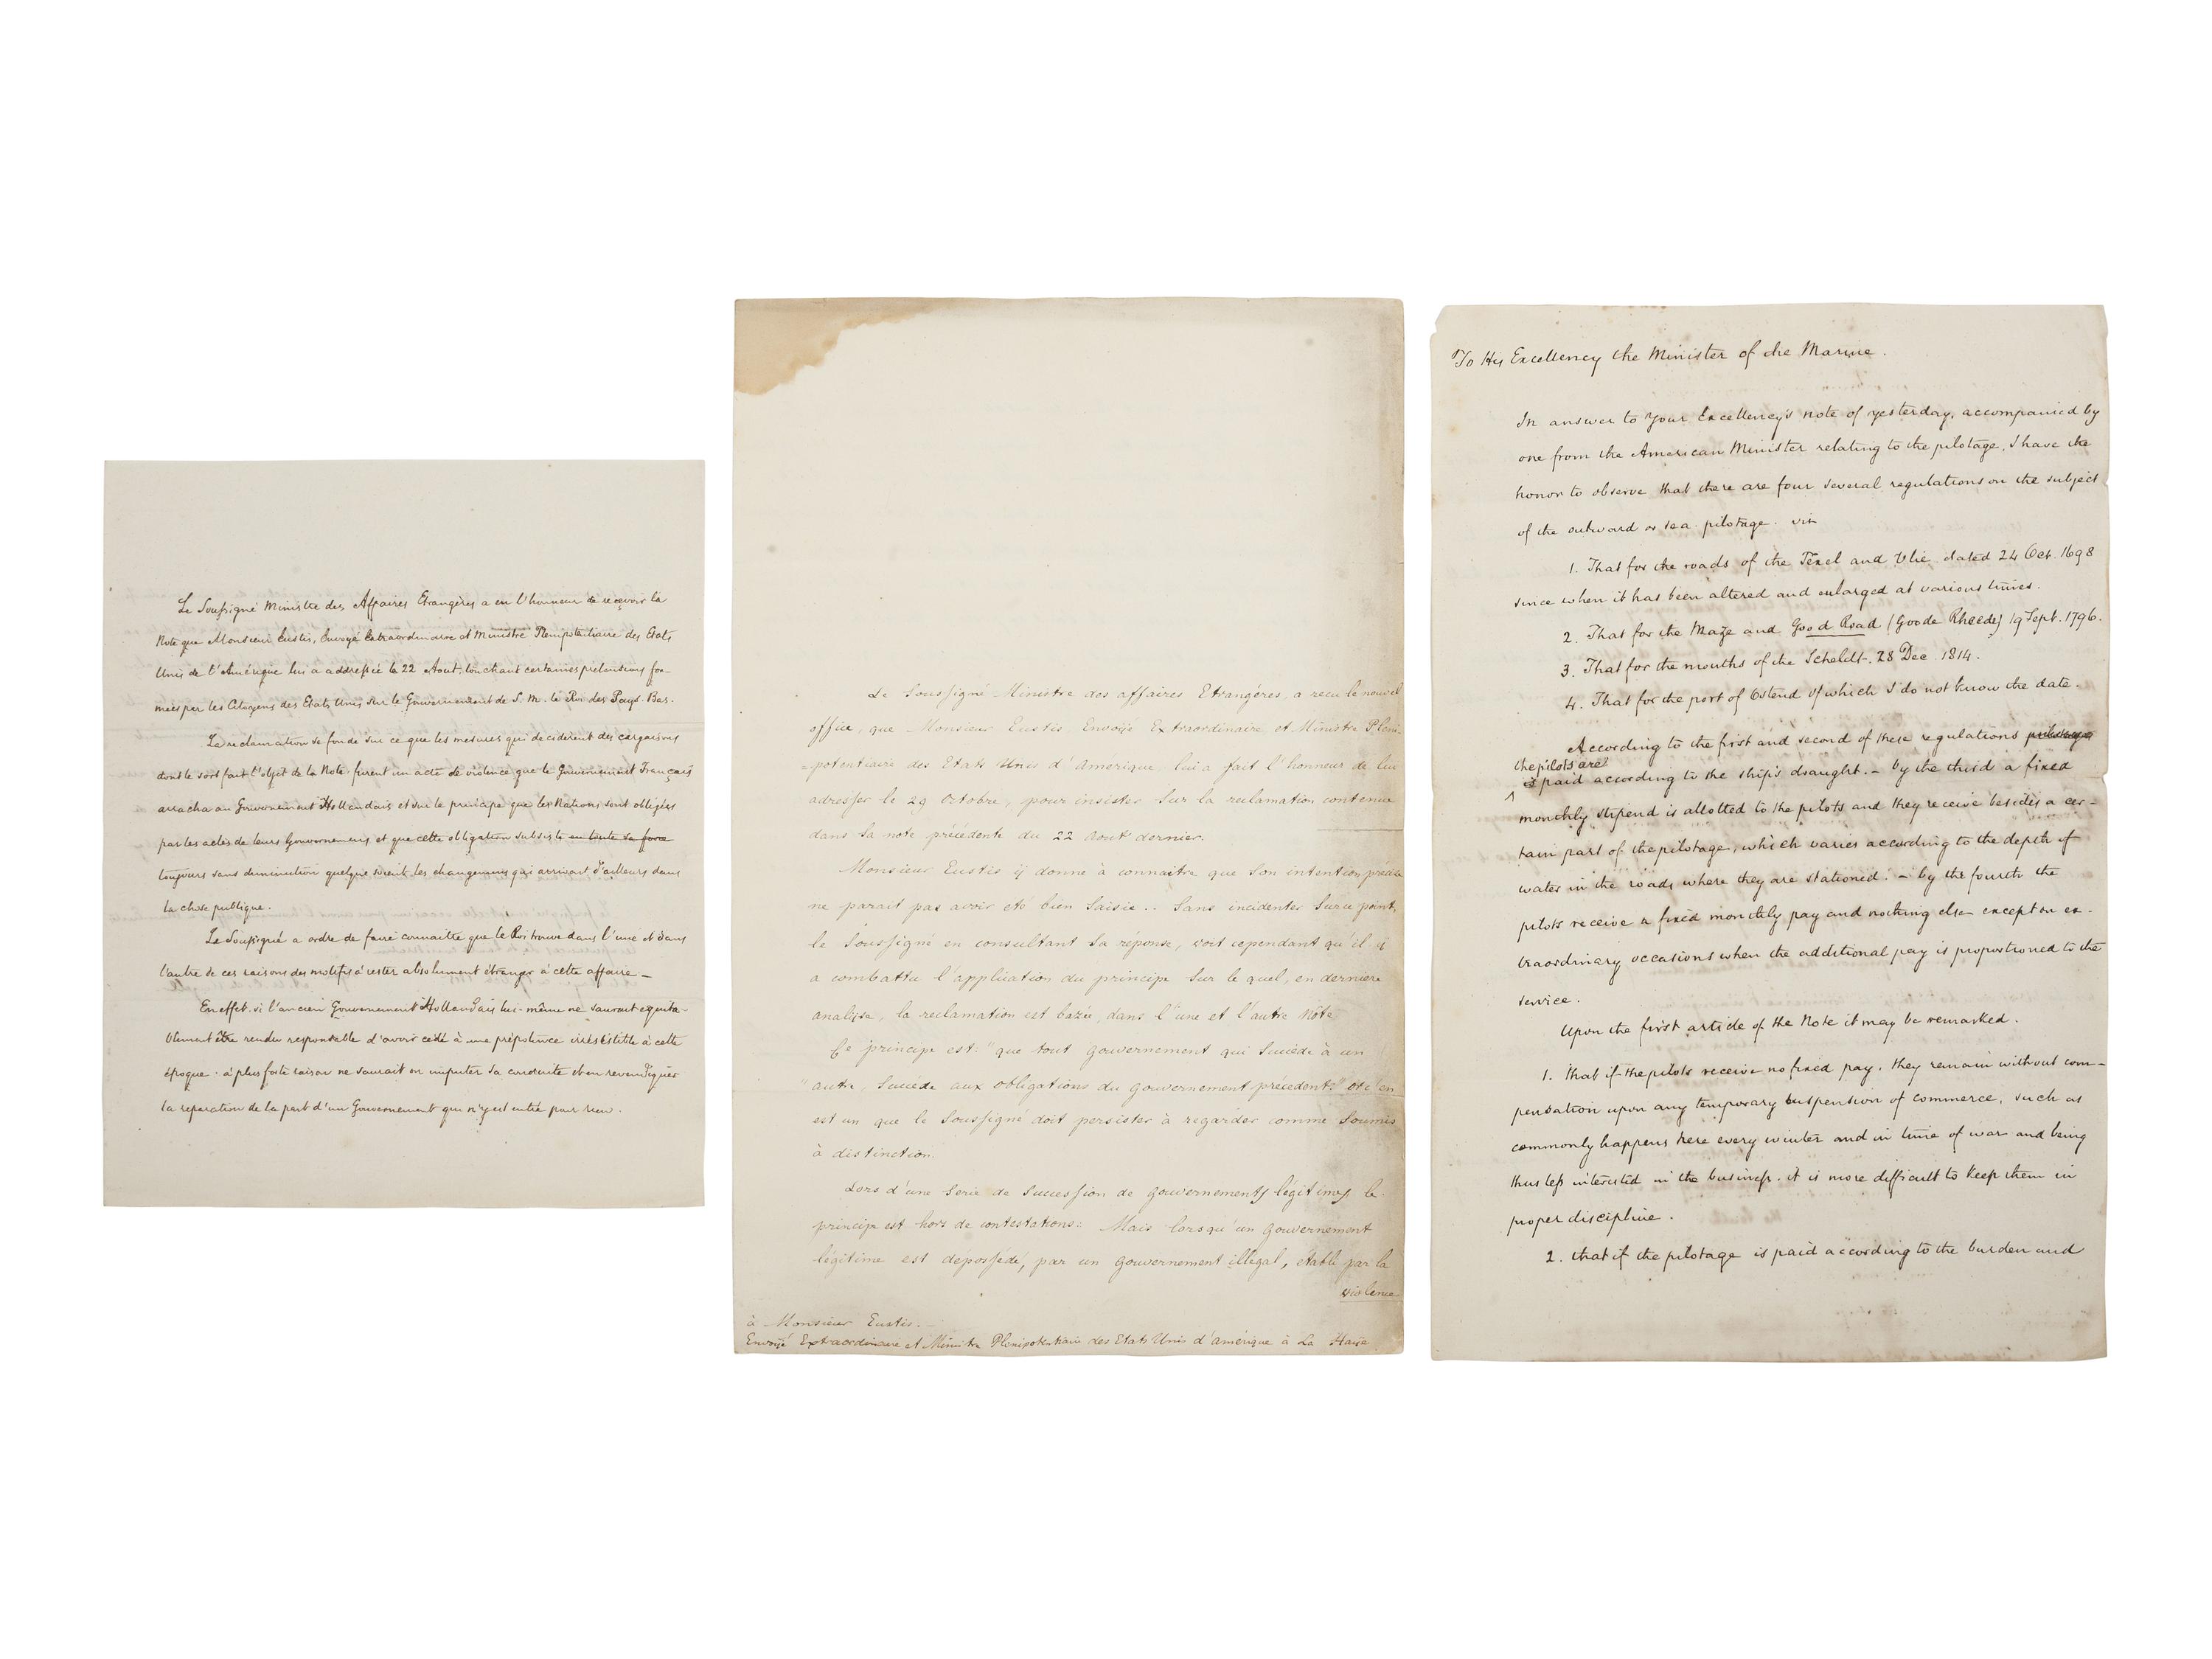 Le Soussigné Ministre des Affaires Etrangères a eu l'honneur de recevoir la
Note que Monsieur Eustis, Envoyé Extraordinaire et Ministre Plenipotentiaire des Etats
Unis de l'Amérique lui a addressée le 22 Aout, touchant certaines prétensions for-
mées par les Citoyens des Etats Unis sur le Gouvernement de S. M. le Roi des Pays-Bas.
La reclamation se fonde sur ce que les mesures qui deciderent des cargaisons
dont le sort fait l'objet de la Note furent un acte de violence que le Gouvernement Français
arracha au Gouvernement Hollandais et sur le principe que les Nations sont obligées
par les actes de leurs Gouvernemens et que cette obligation subsiste en toute sa force
toujours sans diminution quelque soient les changemens qui arrivent d'ailleurs dans
la chose publique.
Le Soussigné a ordre de faire connaitre que le Roi trouve dans l'une et dans
l'autre de ces raisons des motifs à rester absolument étranger à cette affaire —
En effet si l'ancien Gouvernement Hollandais lui-même ne saurait equita-
blement être rendu responsable d'avoir cédé à une prépotence irrésistible à cette
époque à plus forte raison ne saurait on imputer sa conduite et en revendiquer
la reparation de la part d'un Gouvernement qui n'y est entré pour rien.
Le Soussigné Ministre des affaires Etrangéres, a recu le nouvel
office, que Monsieur Eustis, Envoyé Extraordinaire et Ministre Pleni-
=potentiaire des Etats Unis d'amerique lui a fait l'honneur de lui
adresser le 29 Octobre, pour insister Sur la reclamation contenue
dans Sa note précédente du 22 Aout dernier.
Monsieur Eustis ÿ donne à connaitre que Son intention précise
ne parait pas avoir eté bien Saisie.. Sans incidenter Sur ce point,
le Soussigné en consultant Sa réponse, voit cependant qu'il ÿ
a combattu l'application du principe Sur le quel, en derniere
analyse, la reclamation est bazée, dans l'une et l'autre Nôte
Ce principe est: "que tout gouvernement qui Succède à un
"autre, Succéde aux obligations du gouvernement précedent" en
est un que le Soussigné doit persister à regarder comme Soumis
à distinction.
Lors d'une Serie de Succession de gouvernements légitimes le
principe est hors de contestations: Mais lorsqu'un gouvernement
légitime est depossédé, par un gouvernement illégal, établi par la
violence
à Monsieur Eustis.
Envoÿé Extraordinaire et Ministre Plenipotentiaire des Etats Unis d'amérique à La Haÿe
To His Excellency the Minister of the Marine.
In answer to Your Excellency's note of yesterday, accompanied by
one from the American Minister relating to the pilotage, I have the
honor to observe that there are four several regulations on the subject
of the outward or sea pilotage viz
1. That for the roads of the Texel and Vlie dated 24 Oct. 1698
since when it has been altered and enlarged at various times.
2. That for the Maze and Good Road (Goode Rheede) 19 Sept. 1796.
3. That for the mouths of the Scheldt, 28 Dec. 1814.
4. That for the port of Ostend of which I do not know the date.
According to the first and second of these regulations pilotage
the pilots are
is paid according to the ship's draught. – by the third a fixed
monthly stipend is allotted to the pilots and they receive besides a cer-
tain part of the pilotage, which varies according to the depth of
water in the roads where they are stationed. – by the fourth the
pilots receive a fixed monthly pay and nothing else except on ex-
traordinary occasions when the additional pay is proportioned to the
service.
Upon the first article of the Note it may be remarked.
1. that if the pilots receive no fixed pay, they remain without com-
pensation upon any temporary suspension of commerce, such as
commonly happens here every winter and in time of war and being
thus less interested in the business, it is more difficult to keep them in
proper discipline.
2. that if the pilotage is paid according to the burden and